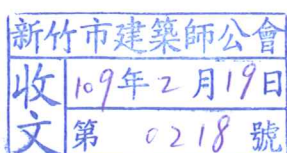 新竹市建築師公會
收文
109年2月19日
第 0218 號